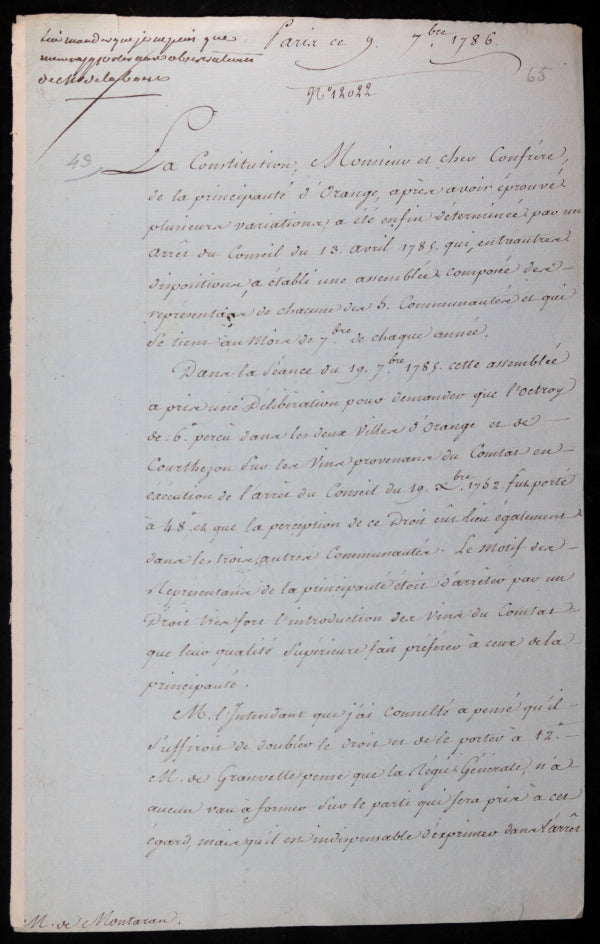 Paris ce 9. 7.bre 1786.
lui mander que je ne puis que
m'en rapporter aux observations
de M. de la
N.º 12022
65
43
La Constitution, Monsieur et cher Confrère,
de la principauté d'Orange, après avoir éprouvé
plusieurs variations, a été enfin déterminée par un
arrêt du Conseil du 13. avril 1785. qui, entr'autres
dispositions, a établi une assemblée composée des
représentans de chacune des 5. Communautés et qui
se tient au Mois de 7.bre de chaque année.
Dans la Séance du 19. 7.bre 1785. cette assemblée
a pris une Délibération pour demander que l'Octroy
de 6.s perçu dans les deux Villes d'Orange et de
Courthezon sur les Vins provenans du Comtat en
éxécution de l'arrêt du Conseil du 19. Xbre. 1752. fut porté
à 48.s et que la perception de ce Droit eût lieu également
dans les trois autres Communautés. Le Motif des
Représentans de la principauté étoit d'arrêter par un
Droit très fort l'introduction des Vins du Comtat
que leur qualité Supérieure fait préférer à ceux de la
principauté.
M. l'Intendant que j'ai consulté a pensé qu'il
suffiroit de doubler le droit et de le porter à 12.s
M. de Granvelle pense que la Régie Générale, n'a
aucun vœu à former sur le parti qui sera pris à cet
égard, mais qu'il est indispensable d'exprimer dans l'arrêt
M. de Montaran.